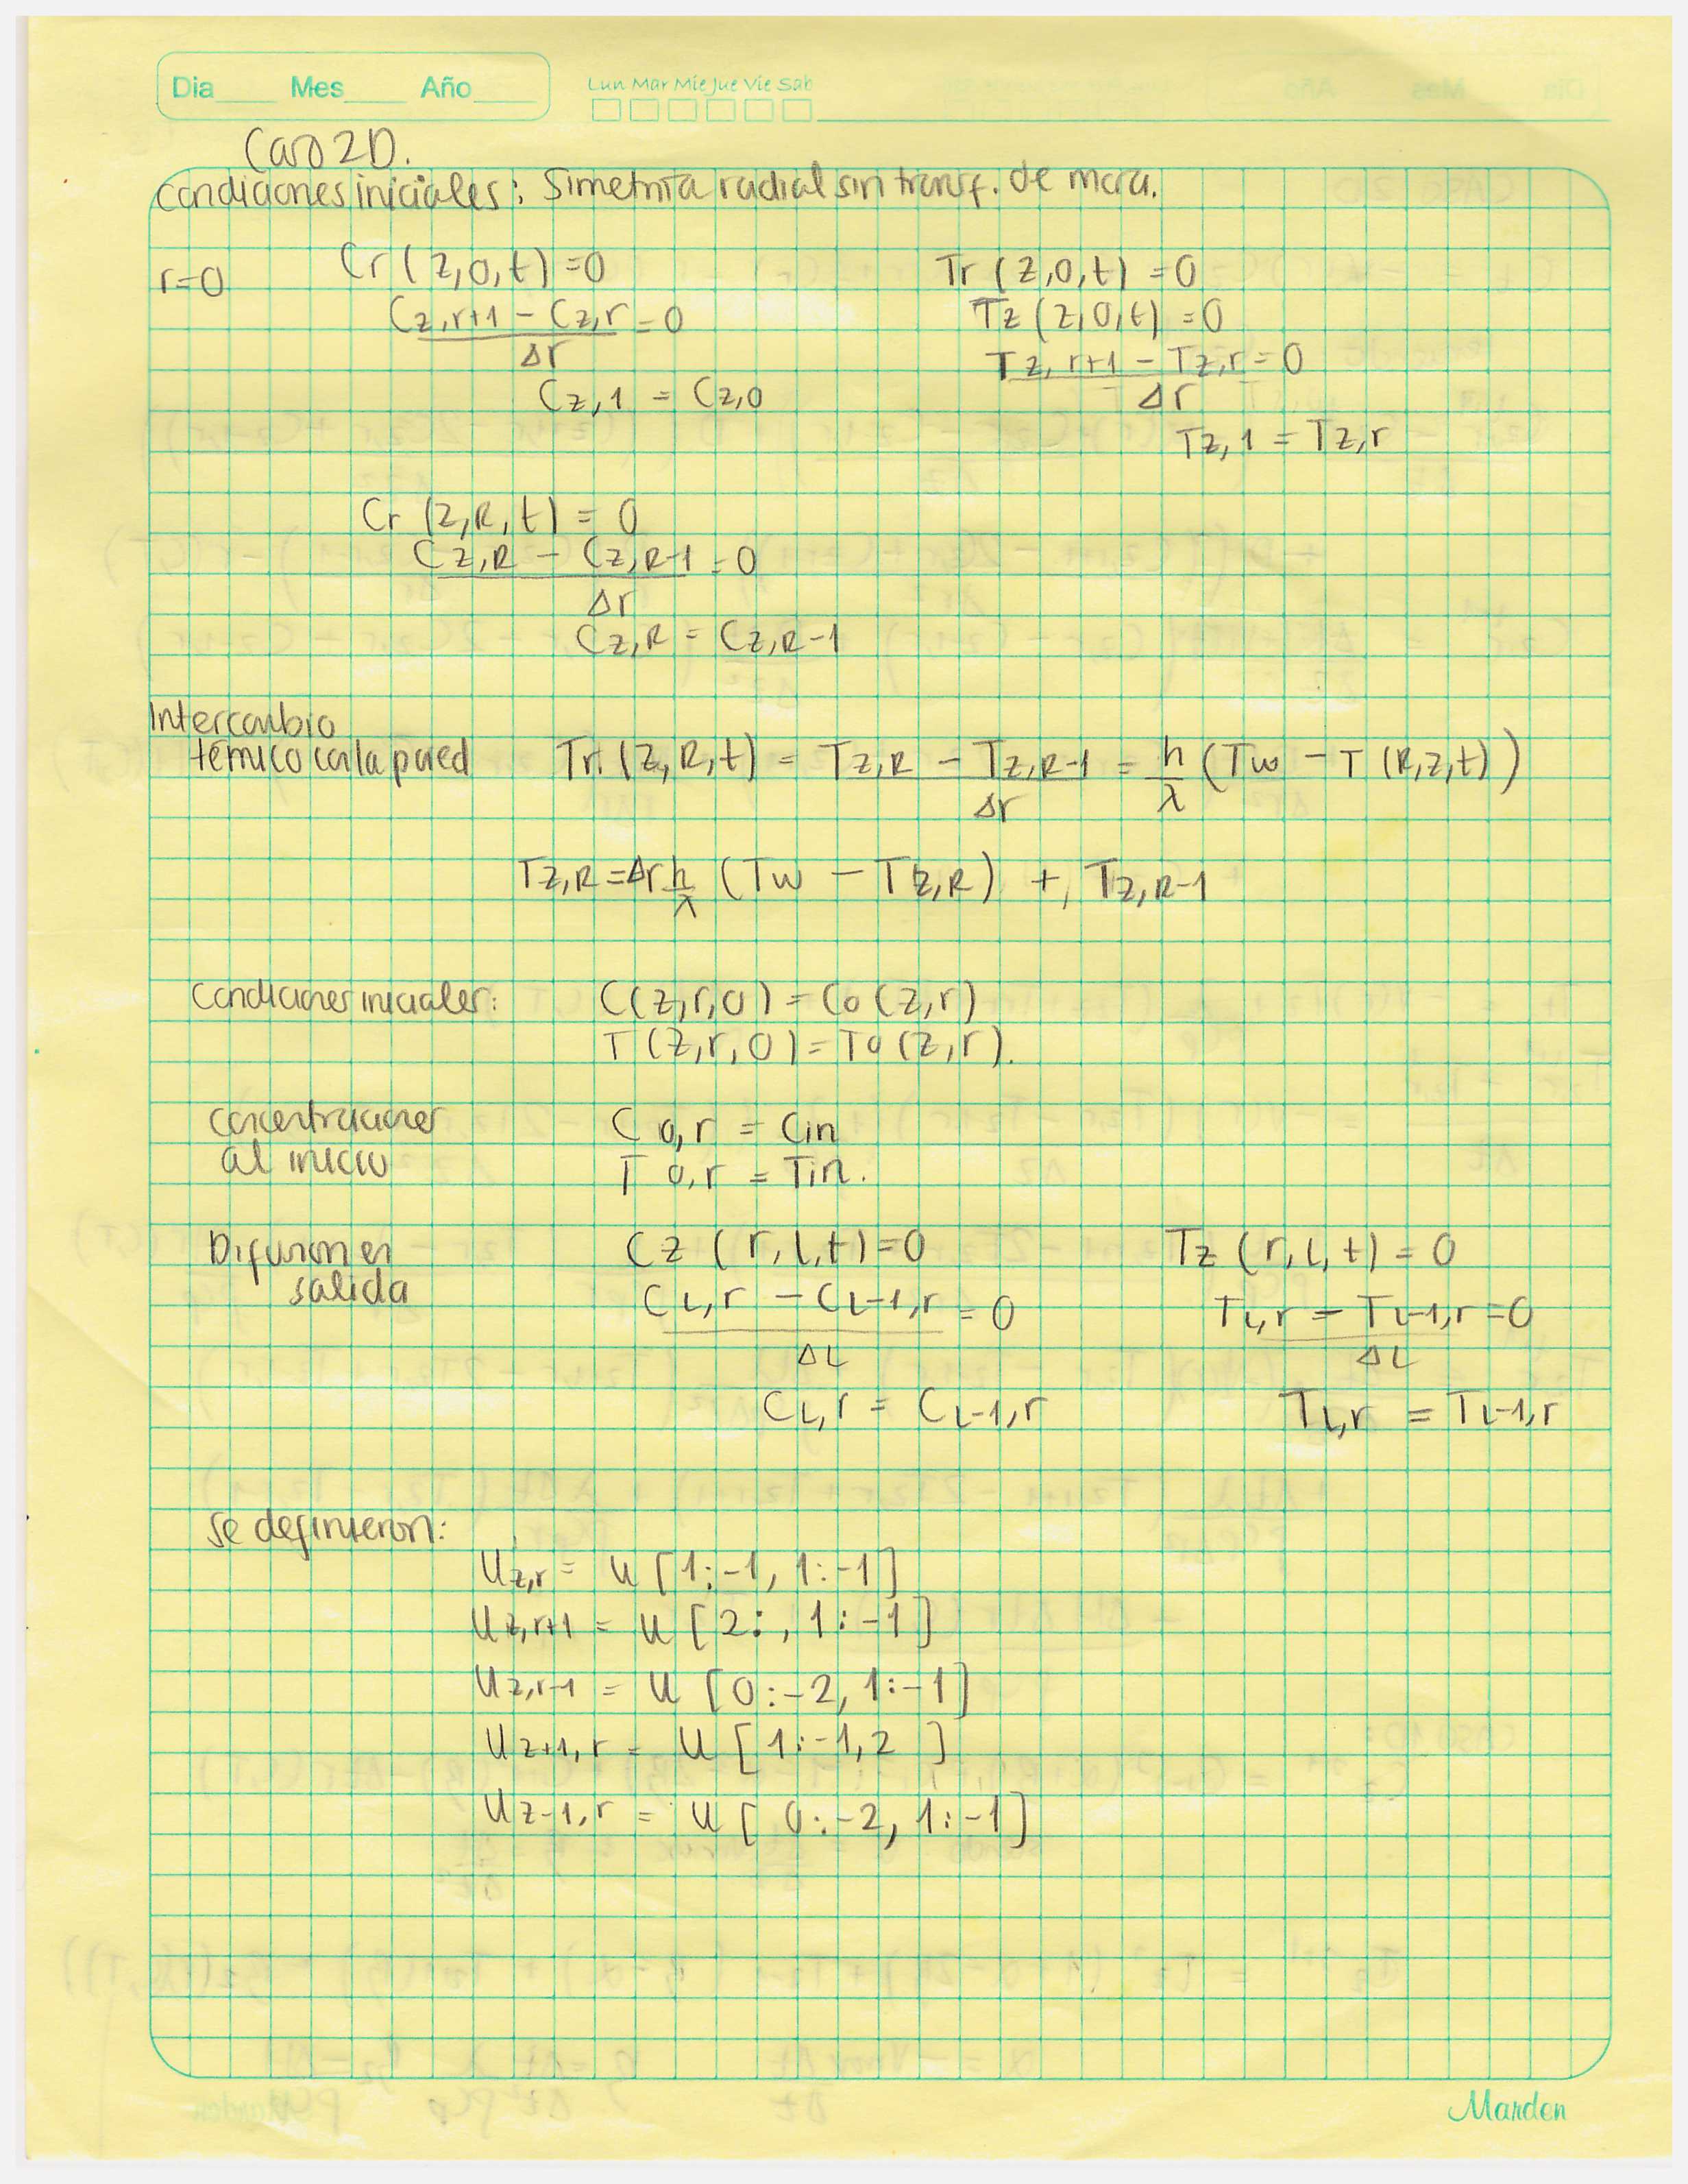 Dia Mes Año Lun Mar Mie Jue Vie Sab
Caso 2D.
Condiciones iniciales: Simetría radial sin transf. de masa.
r=0 Cr (z,0,t) =0 Tr (z,0,t) =0
Cz,r+1 - Cz,r =0 Tz (z,0,t) =0
Δr Tz,r+1 - Tz,r =0
Cz,1 = Cz,0 Δr
Tz,1 = Tz,r
Cr (z,R,t) = 0
Cz,R - Cz,R-1 =0
Δr
Cz,R = Cz,R-1
Intercambio
térmico con la pared Tr (z,R,t) = Tz,R - Tz,R-1 = h (Tw - T (R,z,t))
Δr λ
Tz,R = Δr h/λ (Tw - Tz,R) + Tz,R-1
Condiciones iniciales: C(z,r,0) = Co (z,r)
T (z,r,0) = To (z,r).
Concentraciones C 0,r = Cin
al inicio T 0,r = Tin.
Difusion en Cz (r,L,t)=0 Tz (r,L,t) = 0
salida CL,r - CL-1,r = 0 TL,r - TL-1,r =0
ΔL ΔL
CL,r = CL-1,r TL,r = TL-1,r
Se definieron:
Uz,r = U [1:-1, 1:-1]
Uz,r+1 = U [2:, 1:-1]
Uz,r-1 = U [0:-2, 1:-1]
Uz+1,r = U [1:-1,2 ]
Uz-1,r = U [ 0:-2, 1:-1]
Marden